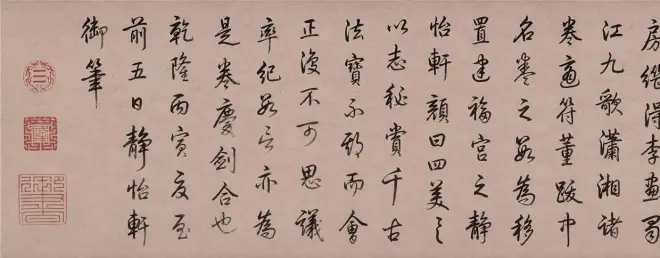 房繼得李畫蜀
江九歌瀟湘諸
卷適符董跋中
名卷之數為移
置建福宮之靜
怡軒顏曰四美具
以志秘賞千古
法寶不期而會
正復不可思議
率紀數言亦為
是卷慶劍合也
乾隆丙寅夏至
前五日靜怡軒
御筆